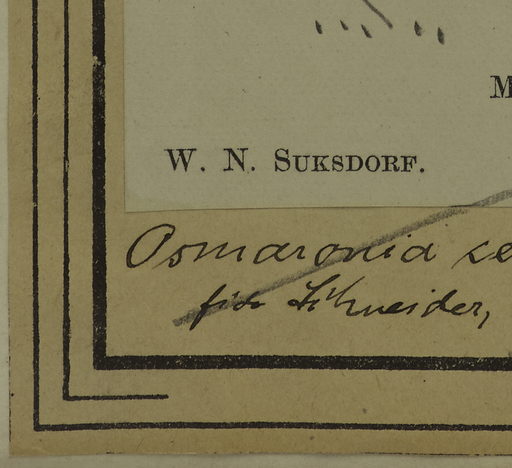 M
W. N. SUKSDORF.
Osmaronia ce
fide Schneider,